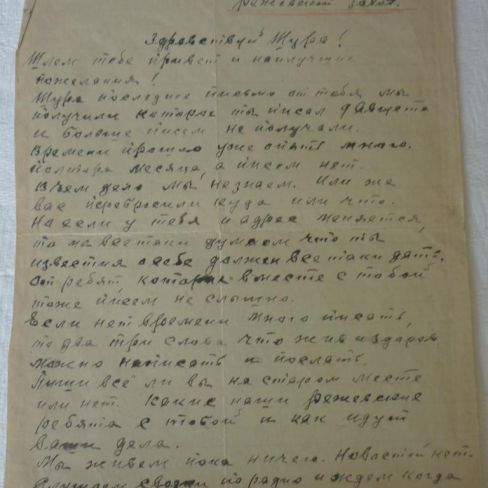 режевской завод.
Здравствуй Шура!
Шлем тебе привет и наилучшие
пожелания!
Шура последнее письмо от тебя мы
получили которое ты писал 9 Августа
и больше писем не получали.
Времени прошло уже опять много.
Полтора месяца, а писем нет.
В чем дело мы незнаем. Или же
вас перебросили куда или что.
Но если у тебя и адрес меняется,
то мы всетаки думаем что ты
известия о себе должен все таки дать.
От ребят, которые вместе с тобой
тоже писем не слышно.
Если нет времени много писать,
то два три слова что жив и здоров
можно написать и послать.
Пиши всё ли вы на старом месте
или нет. Какие наши режевские
ребята с тобой и как идут
ваши дела.
Мы живем пока ничего. Новостей нет.
сводки по радио и ждем когда